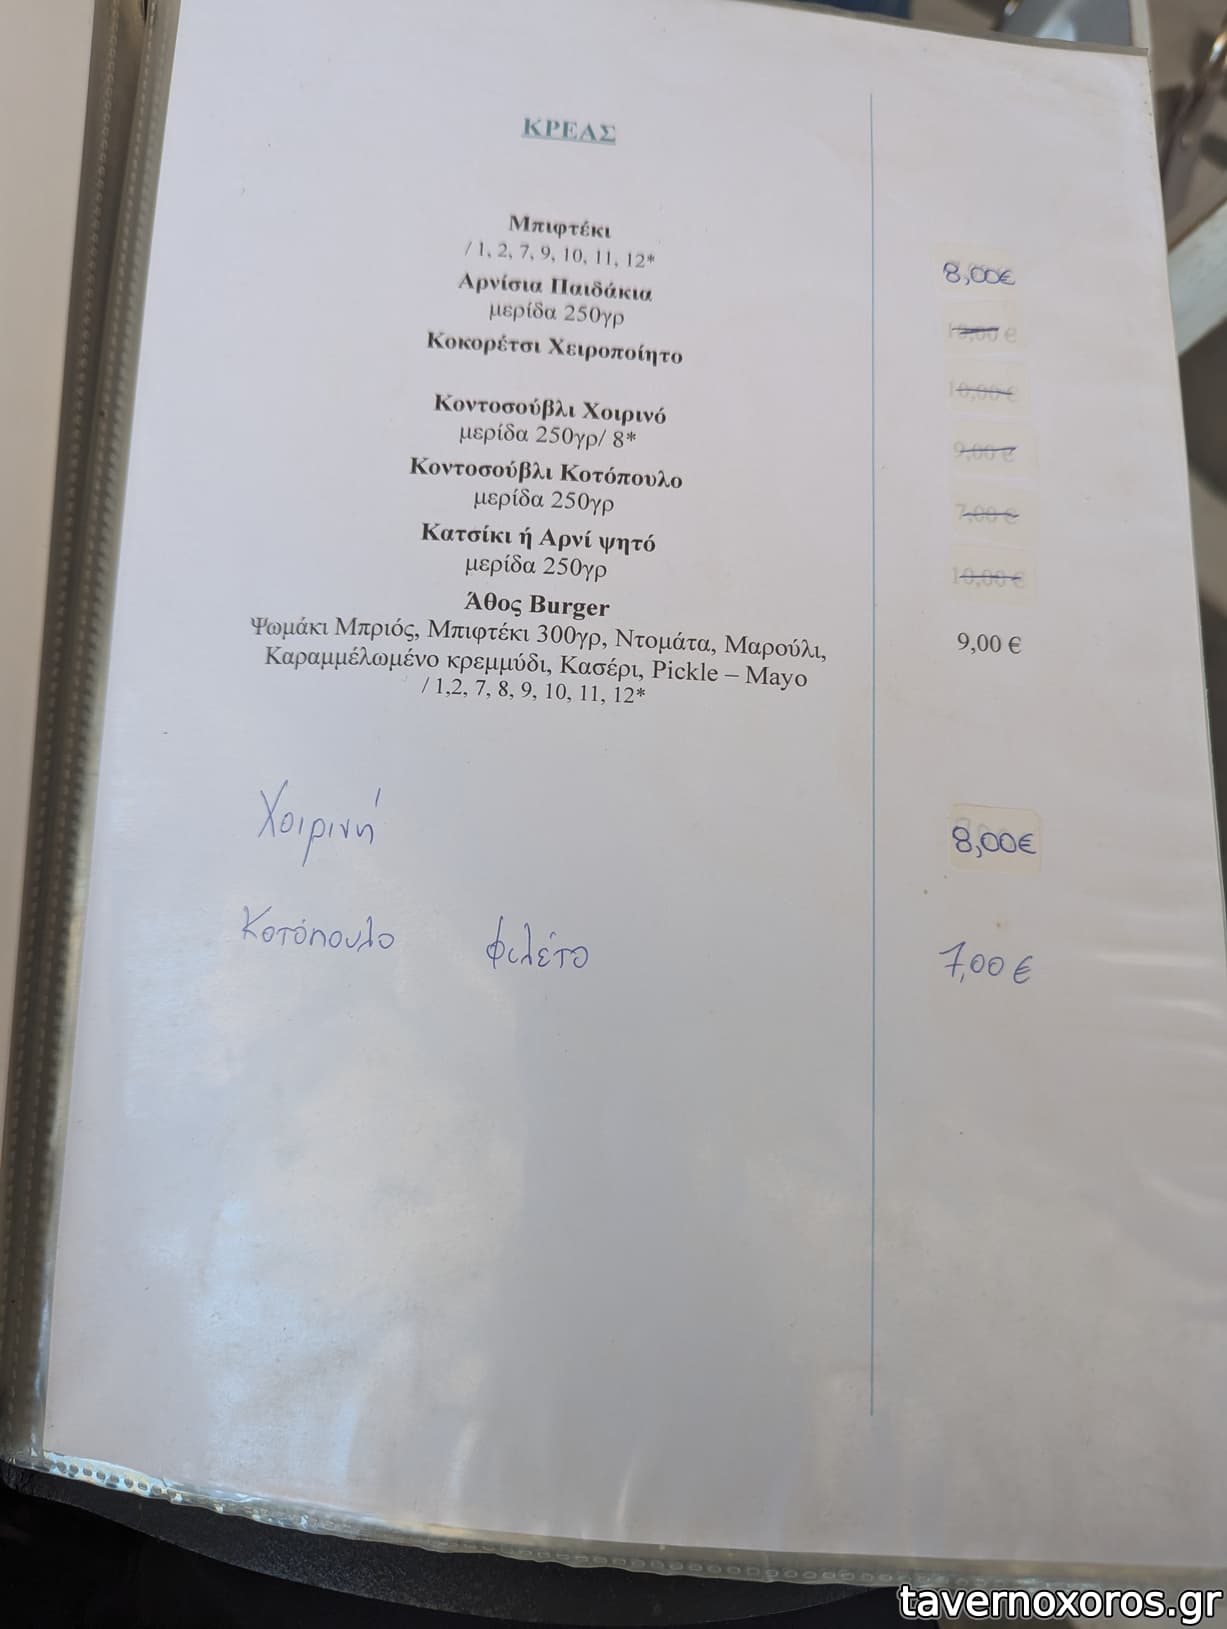 ΚΡΕΑΣ
Μπιφτέκι
/ 1, 2, 7, 9, 10, 11, 12*
8,00€
Αρνίσια Παιδάκια
μερίδα 250γρ
Κοκορέτσι Χειροποίητο
10,00 €
Κοντοσούβλι Χοιρινό
μερίδα 250γρ/ 8*
9,00 €
Κοντοσούβλι Κοτόπουλο
μερίδα 250γρ
7,00 €
Κατσίκι ή Αρνί ψητό
μερίδα 250γρ
10,00 €
Άθος Burger
Ψωμάκι Μπριός, Μπιφτέκι 300γρ, Ντομάτα, Μαρούλι,
9,00 €
Καραμμέλωμένο κρεμμύδι, Κασέρι, Pickle – Mayo
/ 1,2, 7, 8, 9, 10, 11, 12*
Χοιρινή 8,00€
Κοτόπουλο φιλέτο 7,00 €
tavernoxoros.gr